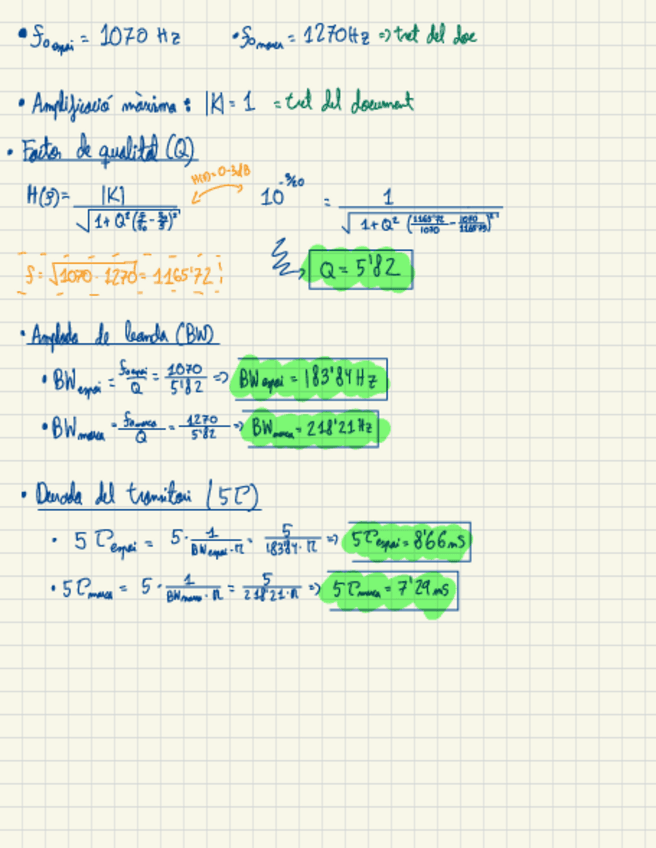 • f₀ espai = 1070 Hz • f₀ marca = 1270Hz => tret del doc
• Amplificació màxima: |K| = 1 = tret del document
• Factor de qualitat (Q)
H(f) = |K| / √(1 + Q² (f/f₀ - f₀/f)²) H(f) = 0-3dB 10^(-3/20) = 1 / √(1 + Q² (1165'72/1070 - 1070/1165'72)²)
f = √(1070 · 1270) = 1165'72 Q = 5'82
• Amplada de banda (BW)
• BW espai = f₀ espai / Q = 1070 / 5'82 => BW espai = 183'84 Hz
• BW marca = f₀ marca / Q = 1270 / 5'82 => BW marca = 218'21 Hz
• Durada del transitori (5τ)
• 5τ espai = 5 · 1 / (BW espai · π) = 5 / (183'84 · π) => 5τ espai = 8'66 ms
• 5τ marca = 5 · 1 / (BW marca · π) = 5 / (218'21 · π) => 5τ marca = 7'29 ms